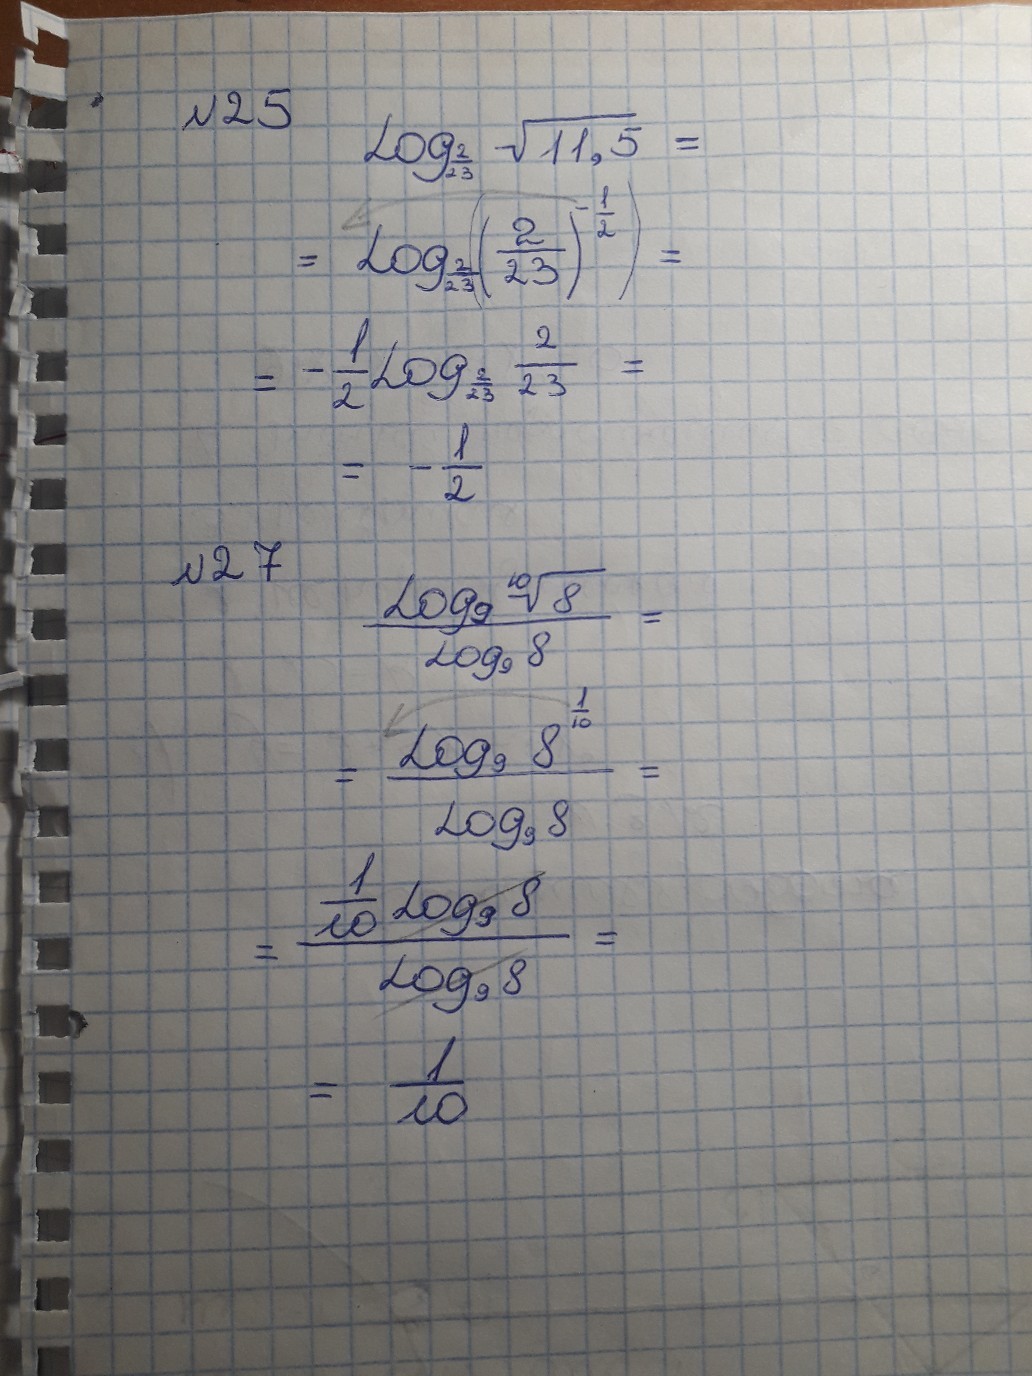 №25
Log_{\frac{2}{23}} \sqrt{11,5} =
= Log_{\frac{2}{23}} \left( \left( \frac{2}{23} \right)^{-\frac{1}{2}} \right) =
= -\frac{1}{2} Log_{\frac{2}{23}} \frac{2}{23} =
= -\frac{1}{2}
№27
\frac{Log_9 \sqrt[10]{8}}{Log_9 8} =
= \frac{Log_9 8^{\frac{1}{10}}}{Log_9 8} =
= \frac{\frac{1}{10} Log_9 8}{Log_9 8} =
= \frac{1}{10}